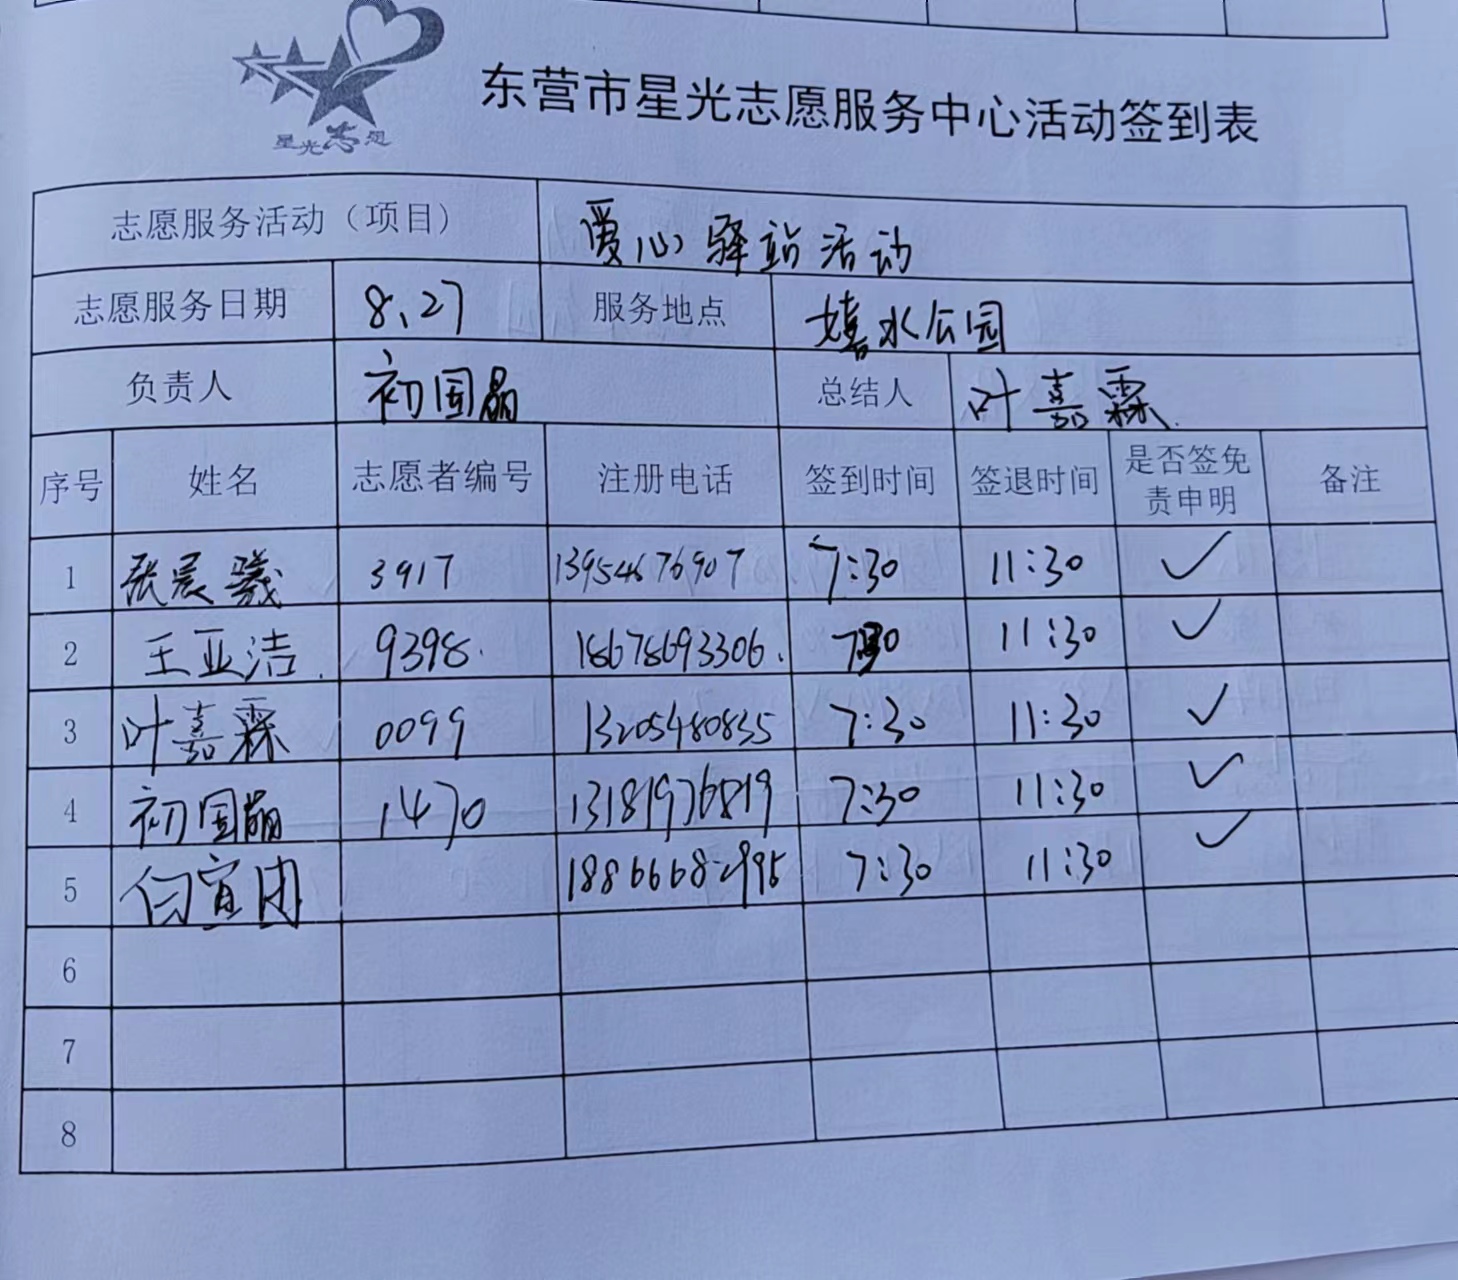 星光志愿
东营市星光志愿服务中心活动签到表
志愿服务活动（项目） 爱心驿站活动
志愿服务日期 8、27 服务地点 嬉水公园
负责人 初国晶 总结人 叶嘉霖
序号 姓名 志愿者编号 注册电话 签到时间 签退时间 是否签免责申明 备注
1 张晨曦 3917 13954676907 7:30 11:30 ✓
2 王亚洁 9398 18678693306 7:30 11:30 ✓
3 叶嘉霖 0099 13205480835 7:30 11:30 ✓
4 初国晶 1470 13181976819 7:30 11:30 ✓
5 白宜团 7:30 11:30 ✓
6
7
8